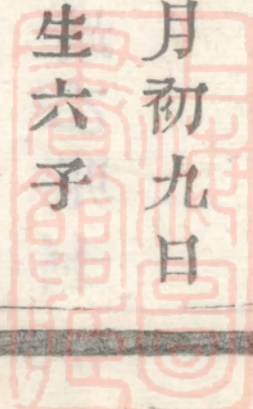 月初九日
生六子